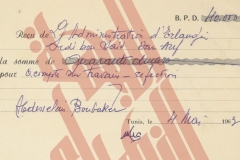 B. P. D. 40.000
Reçu de l'Administration d'Erlanger
Sidi bou Saïd
la somme de Quarante dinars
pour acompte du travail - refection
Abdesselem Boubaker
Tunis, le 4 Mai 1963